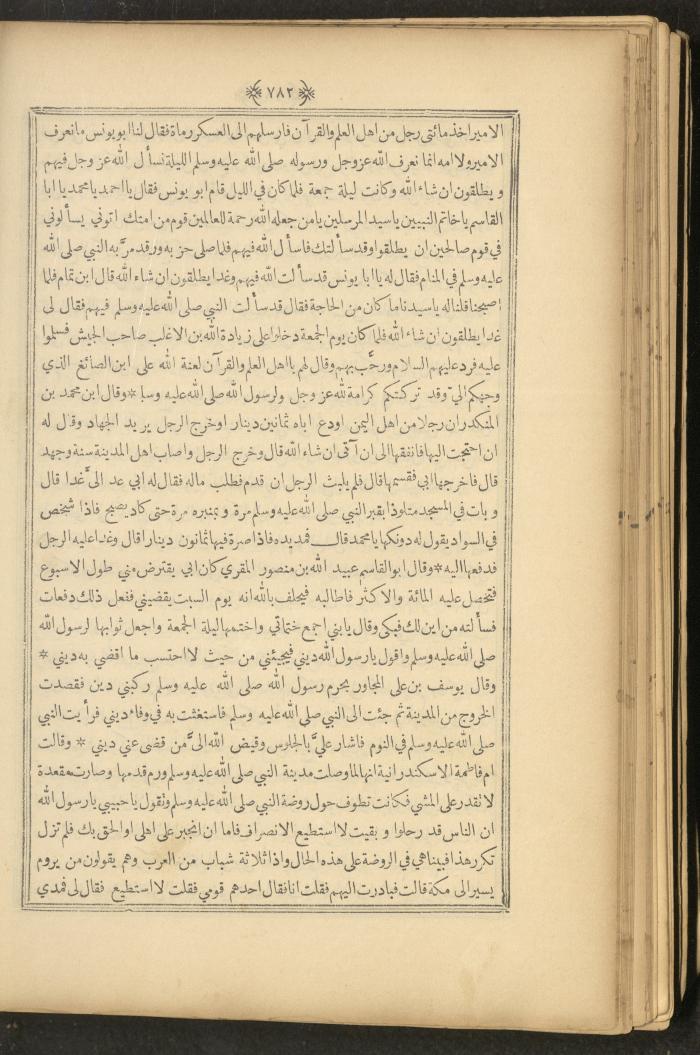 ٧٨٢
الامير اخذ مائتى رجل من اهل العلم والقرآن فارسلهم الى العسكر رماة فقال لنا ابو يونس ما نعرف
الامير ولا امه انما نعرف الله عز وجل ورسوله صلى الله عليه وسلم الليلة نسأل الله عز وجل فيهم
و يطلقون ان شاء الله وكانت ليلة جمعة فلما كان في الليل قام ابو يونس فقال يا احمد يا محمد يا ابا
القاسم يا خاتم النبيين ياسيد المرسلين يا من جعله الله رحمة للعالمين قوم من امتك اتوني يسألوني
في قوم صالحين ان يطلقوا وقد سألتك فاسأل الله فيهم فلما صلى حز به ورقد مرَّ به النبي صلى الله
عليه وسلم في المنام فقال له يا ابا يونس قد سألت الله فيهم وغدا يطلقون ان شاء الله قال ابن تمام فلما
اصبحنا قلنا له ياسيدنا ما كان من الحاجة فقال قد سألت النبي صلى الله عليه وسلم فيهم فقال لى
غدا يطلقون ان شاء الله فلما كان يوم الجمعة دخلوا على زيادة الله بن الاغلب صاحب الجيش فسلموا
عليه فرد عليهم السلام ورحَّب بهم وقال لهم يا اهل العلم والقرآن لعنة الله على ابن الصائغ الذي
وجهكم اليّ وقد تركتكم كرامة لله عز وجل ولرسول الله صلى الله عليه وسلم * وقال ابن محمد بن
المنكدر ان رجلا من اهل اليمن اودع اباه ثمانين دينار او خرج الرجل يريد الجهاد وقال له
ان احتجت اليها فانفقها الى ان آتى ان شاء الله قال وخرج الرجل واصاب اهل المدينة سنة وجهد
قال فاخرجها ابي فقسمها قال فلم يلبث الرجل ان قدم فطلب ماله فقال له ابي عد الىَّ غدا قال
و بات في المسجد متلوذا بقبر النبي صلى الله عليه وسلم مرة و بمنبره مرة حتى كاد يصبح فاذا شخص
في السواد يقول له دونكها يا محمد قال فمد يده فاذا صرة فيها ثمانون دينارا قال وغدا عليه الرجل
فدفعها اليه * وقال ابو القاسم عبيد الله بن منصور المقري كان ابي يقترض مني طول الاسبوع
فتحصل عليه المائة والاكثر فاطالبه فيحلف بالله انه يوم السبت يقضيني ففعل ذلك دفعات
فسألته من اين لك فبكى وقال يا بني اجمع ختماتي واختمها ليلة الجمعة واجعل ثوابها لرسول الله
صلى الله عليه وسلم واقول يا رسول الله ديني فيجيئني من حيث لا احتسب ما اقضي به ديني *
وقال يوسف بن على المجاور بحرم رسول الله صلى الله عليه وسلم ركبني دين فقصدت
الخروج من المدينة ثم جئت الى النبي صلى الله عليه وسلم فاستغثت به في وفاء ديني فرأيت النبي
صلى الله عليه وسلم في النوم فاشار عليَّ بالجلوس وقيض الله الىَّ من قضى عني ديني * وقالت
ام فاطمة الاسكندرانية انها لما وصلت مدينة النبي صلى الله عليه وسلم ورم قدمها وصارت مقعدة
لا تقدر على المشي فكانت تطوف حول روضة النبي صلى الله عليه وسلم وتقول يا حبيبي يا رسول الله
ان الناس قد رحلوا و بقيت لا استطيع الانصراف فاما ان انجبر على اهلى او الحق بك فلم تزل
تكرر هذا فبينا هي في الروضة على هذه الحال واذا ثلاثة شباب من العرب وهم يقولون من يروم
يسير الى مكة قالت فبادرت اليهم فقلت انا فقال احدهم قومي فقلت لا استطيع فقال لى فمدي